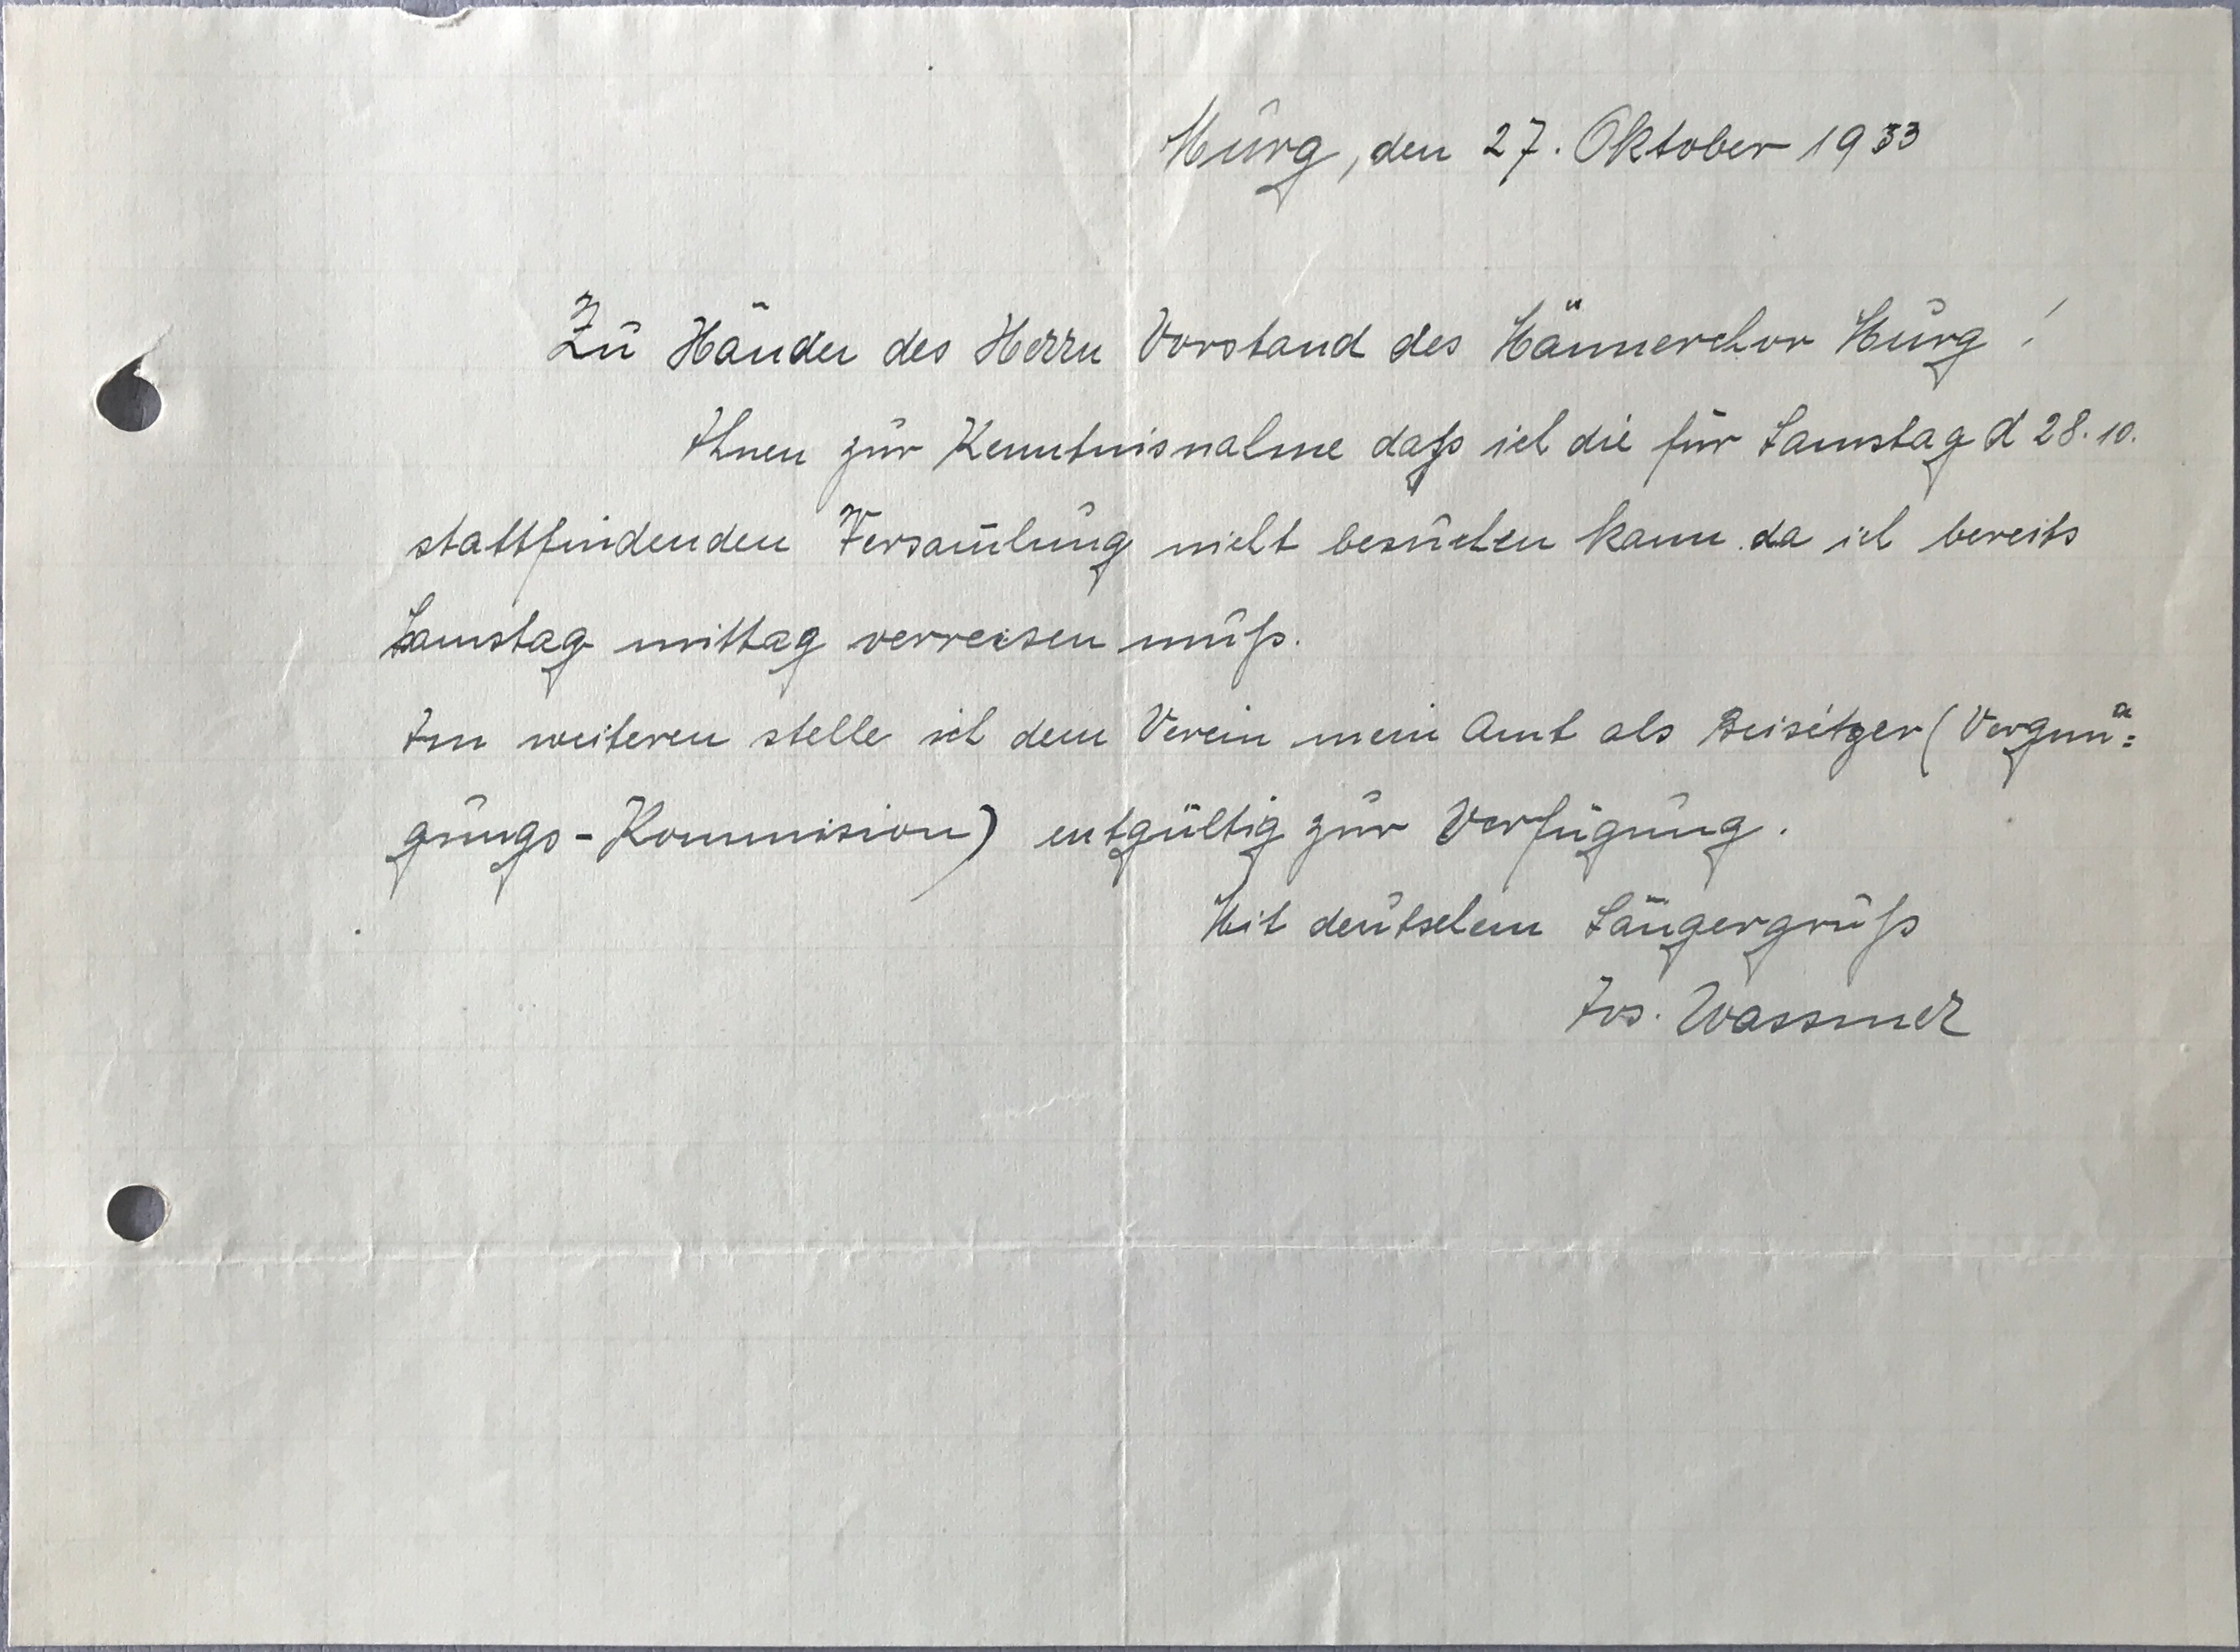 Murg, den 27. Oktober 1933
Zu Händen des Herrn Vorstand des Männerchor Murg!
Ihnen zur Kenntnisnahme daß ich die für Samstag d 28. 10.
stattfindenden Versam̄lung nicht besuchen kann da ich bereits
Samstag mittag verreisen muß.
Im weiteren stelle ich dem Verein mein Amt als Beisitzer (Vergnü=
gungs-Kommision) entgültig zur Verfügung.
Mit deutschem Sängergruß
Jos. Wassmer